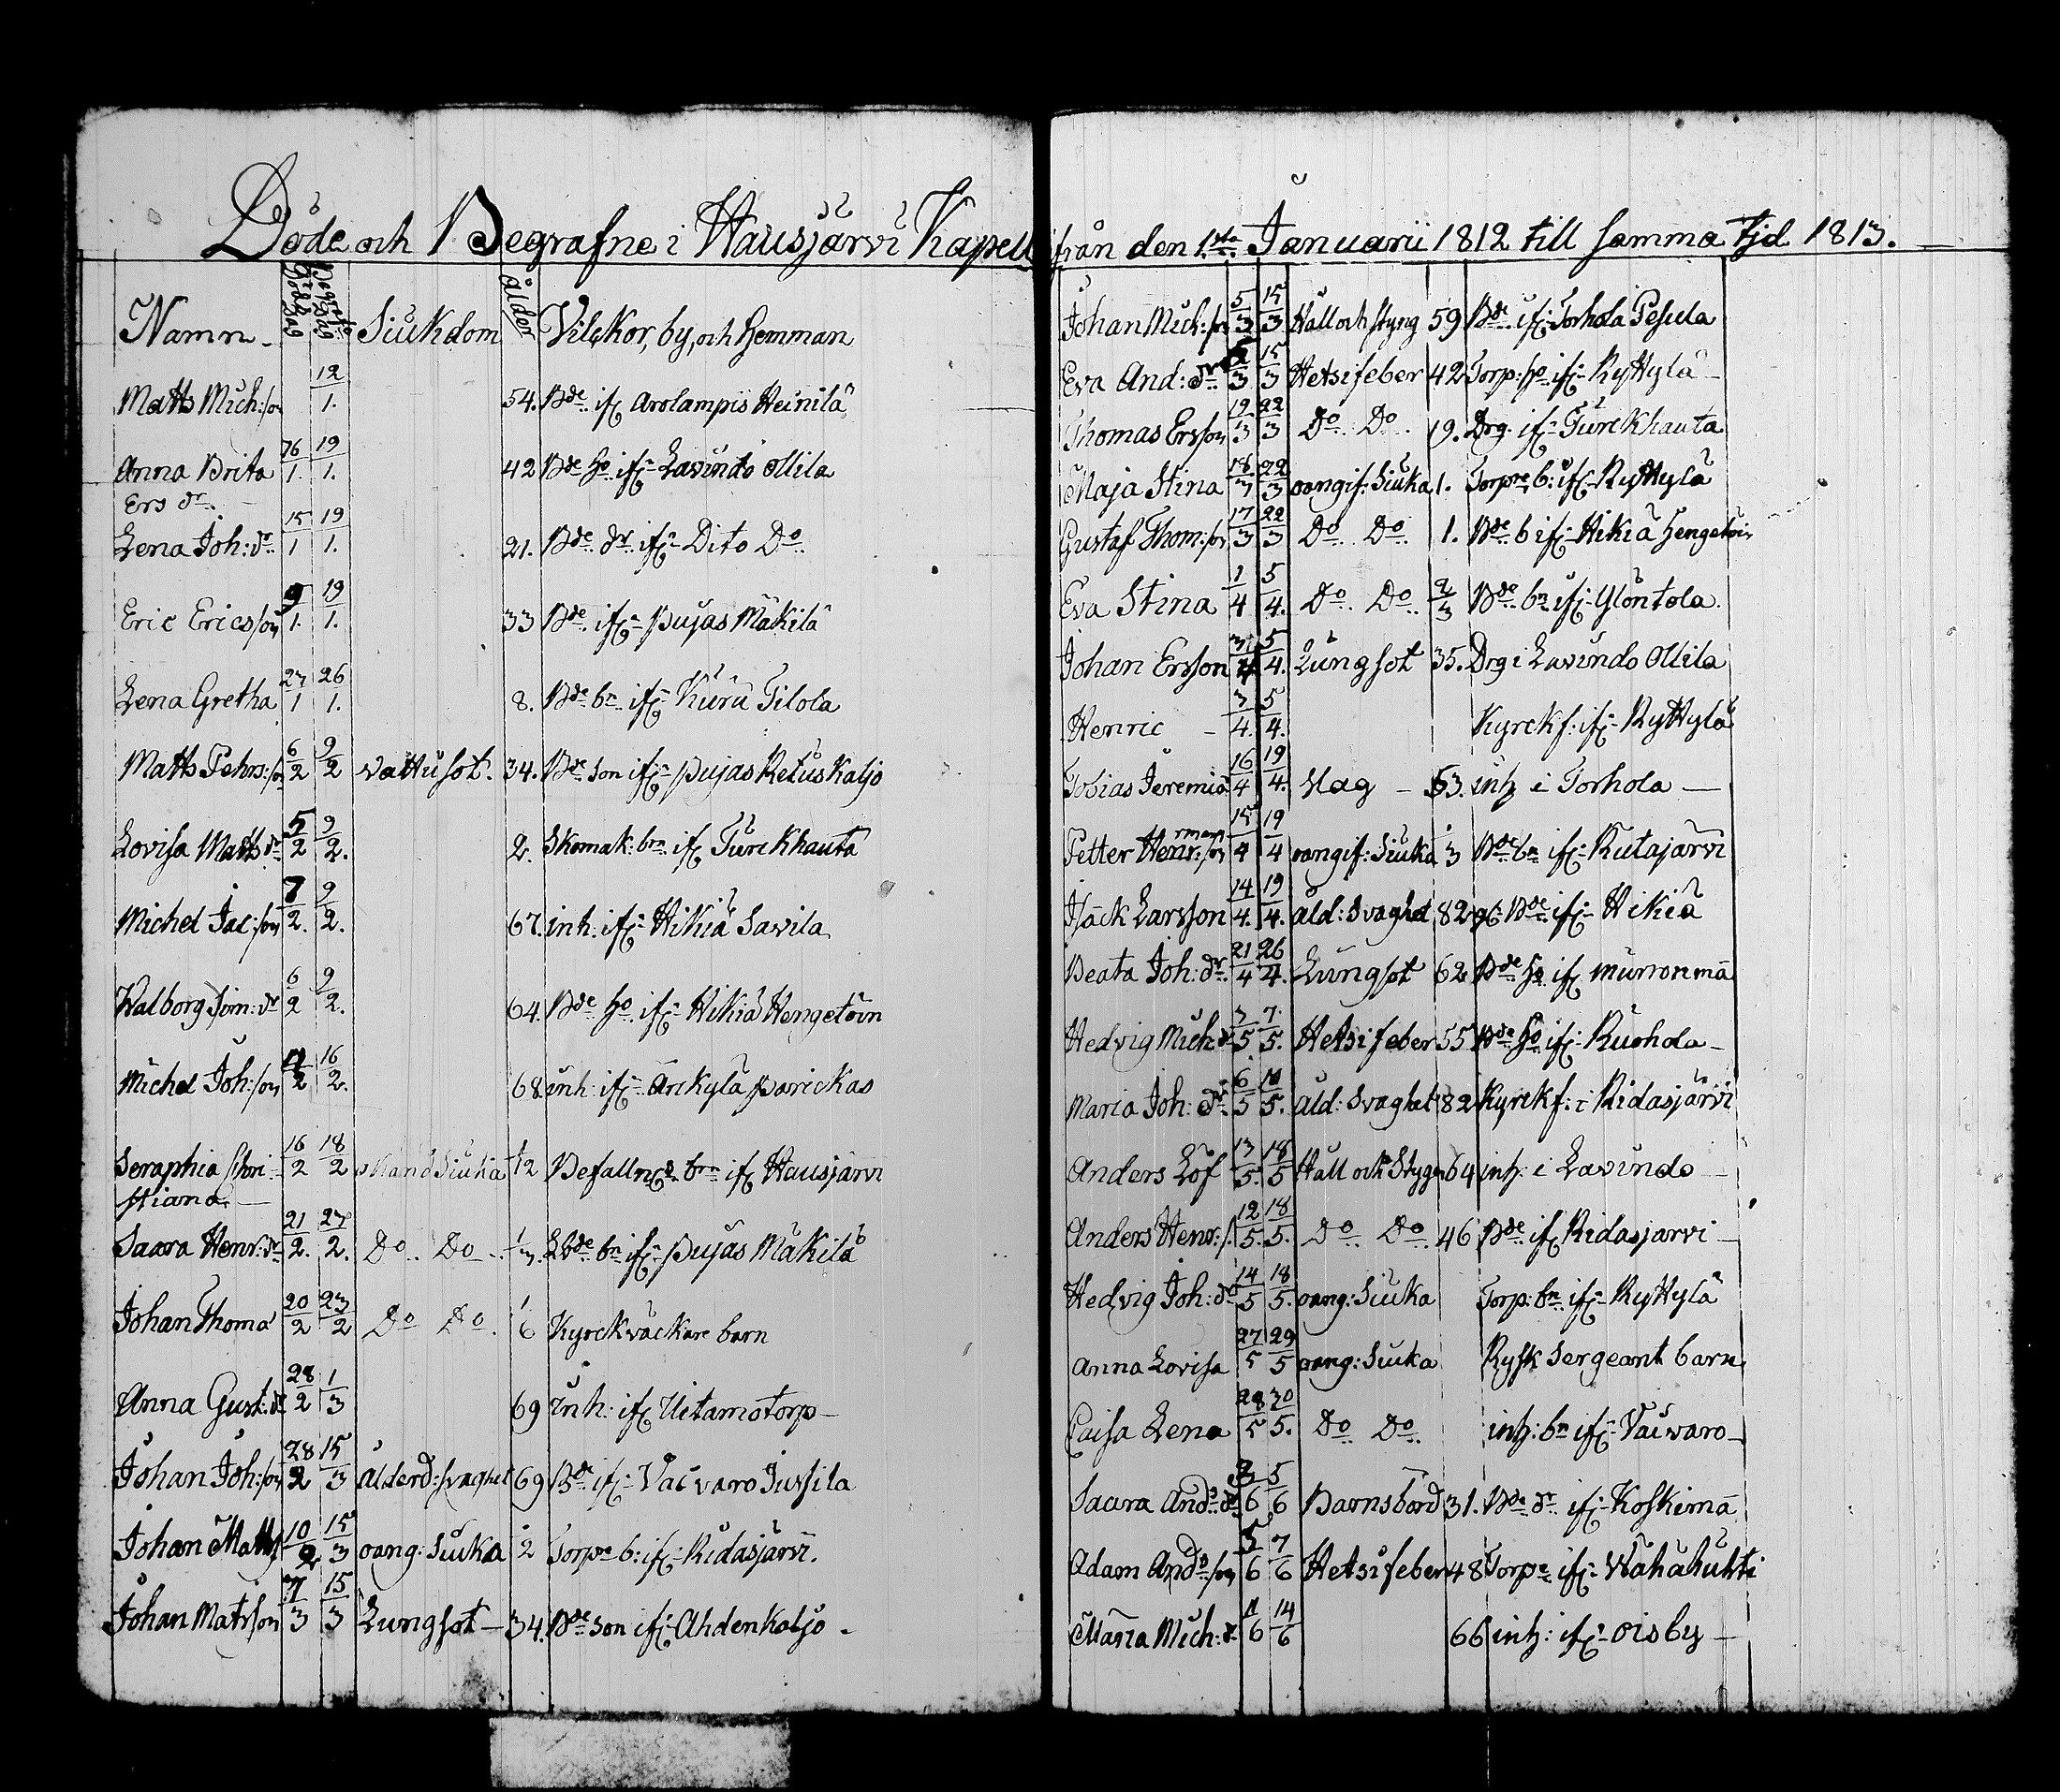 Döde och Begrafne i Hausjärvi Kapell från den 1sta Januarii 1812 till samma tjd 1813.
Namn Död Dag Begrafn: Dag Siukdom ålder Vilckor, by, och Hemman
Matts Mich:son 12/1. 54. Bde if: Arolampis Heinilä
Anna Brita 16/1. 19/1. 42 Bde ho if: Lavindo Ollila
Ers dr
Lena Joh: dr 15/1 19/1. 21. Bde dr if: Dito Do
Eric Ericsson 9/1. 19/1. 33 Bde if: Pujas Mäkilä
Lena Gretha 27/1 26/1. 8. Bde bn if: Kuru Tilola
Matts Pehrs:son 6/2 9/2 vattusot. 34. Bde son if: Pujas Retus Kaljo
Lovisa Matts dr 5/2 9/2. 2. Skomak: brn if: Turckhauta
Michel Jac:son 7/2. 9/2. 67. inh: if: Hikiä Savila
Walborg Sim: dr 6/2 9/2. 64. Bde ho if: Hikiä Hengetöin
Michel Joh:son 11/2 16/2. 68 inh: if: Arckylä Parickas
Seraphia Chri- 16/2 18/2 okänd Siuka 1/12 Befallng brn if: Hausjärvi
stiana
Saara Henr: dr 21/2. 27/2. Do Do 1/3. Bde bn if: Pujas Mäkilä
Johan Thoma 20/2 23/2 Do Do. 1/6 Kyrckväckare barn
Anna Gust: dr 28/2 1/3 69 inh: if: Uitamotorp
Johan Joh:son 28/2 15/3 Ålderd: svaghet 69 Bde if: Vaivaro Jussila
Johan Matts 10/2 15/3 oang: Siuka 2 Torpe b: if: Ridasjärvi.
Johan Matsson 7/3 15/3 Lungsot 34. Bde son if: Ahdenkaljo
Johan Mich:son 5/3 15/3 Håll och styng 59 Bde if: Torhola Pesula
Eva And: dr 15/3 Hetsifeber 42 Torp: ho if: Ryttylä
Thomas Ersson 19/3 22/3 Do Do 19. Drg. if: Turckhauta
Maja Stina 18/3 22/3 oangif: Siuka 1. Torpre b: if: Ryttylä
Gustaf Thom:son 17/3 22/3 Do Do 1. Bde b if: Hikiä Hengetöin
Eva Stina 1/4 5/4. Do Do 2/3 Bde bn if: Ylöntola.
Johan Ersson 3/4 5/4. Lungsot 35. Drg i Lavindo Ollila
Henric 3/4. 5/4. Kyrckf: if: Ryttylä
Tobias Jeremia 16/4 19/4. slag 53. inh i Torhola
Petter Hermanson 15/4 19/4 oangif: Siuka 3 Bde bn if: Kutajärvi
Isack Larsson 14/4. 19/4. åld: Svaghet 82 Bde if: Hikiä
Beata Joh: dr 21/4 26/4. Lungsot 62 Bde ho if: Murronmä
Hedvig Mich dr 3/5 7/5. Hetsifeber 55 Bde ho if: Rushola
Maria Joh: dr 6/5 10/5. Åld: Svaghet 82 Kyrckf: i Ridasjärvi
Anders Löf 13/5. 18/5 Håll och Stygn 64 inh: i Lavindo
Anders Henr:s. 12/5. 18/5. Do Do 46 Bde if: Ridasjärvi
Hedvig Joh: dr 14/5 18/5. oang: Siuka Torp: bn if: Ryttylä
Anna Lovisa 27/5 29/5 oang: Siuka Rysk Sergeant barn
Caisa Lena 28/5 30/5. Do Do inh: bn if: Vaivaro
Saara And: dr 3/6 5/6 Barnsbörd 31. Bde dr if: Koskimä
Adam And:son 5/6 7/6 Hetsifeber 48 Torpe if: Wähähuhti
Maria Mich: dr 11/6 14/6 66 inh: if: Oisby